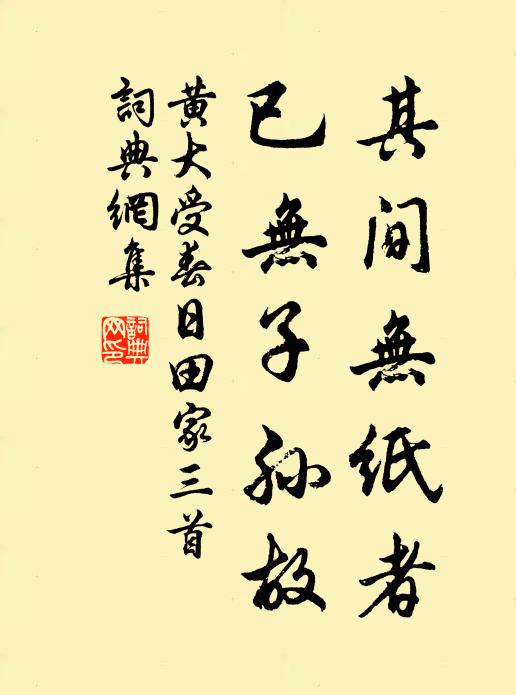 其间無紙者
已無子孙故
黄大受春日田家三首
詞典網集
詞典網印